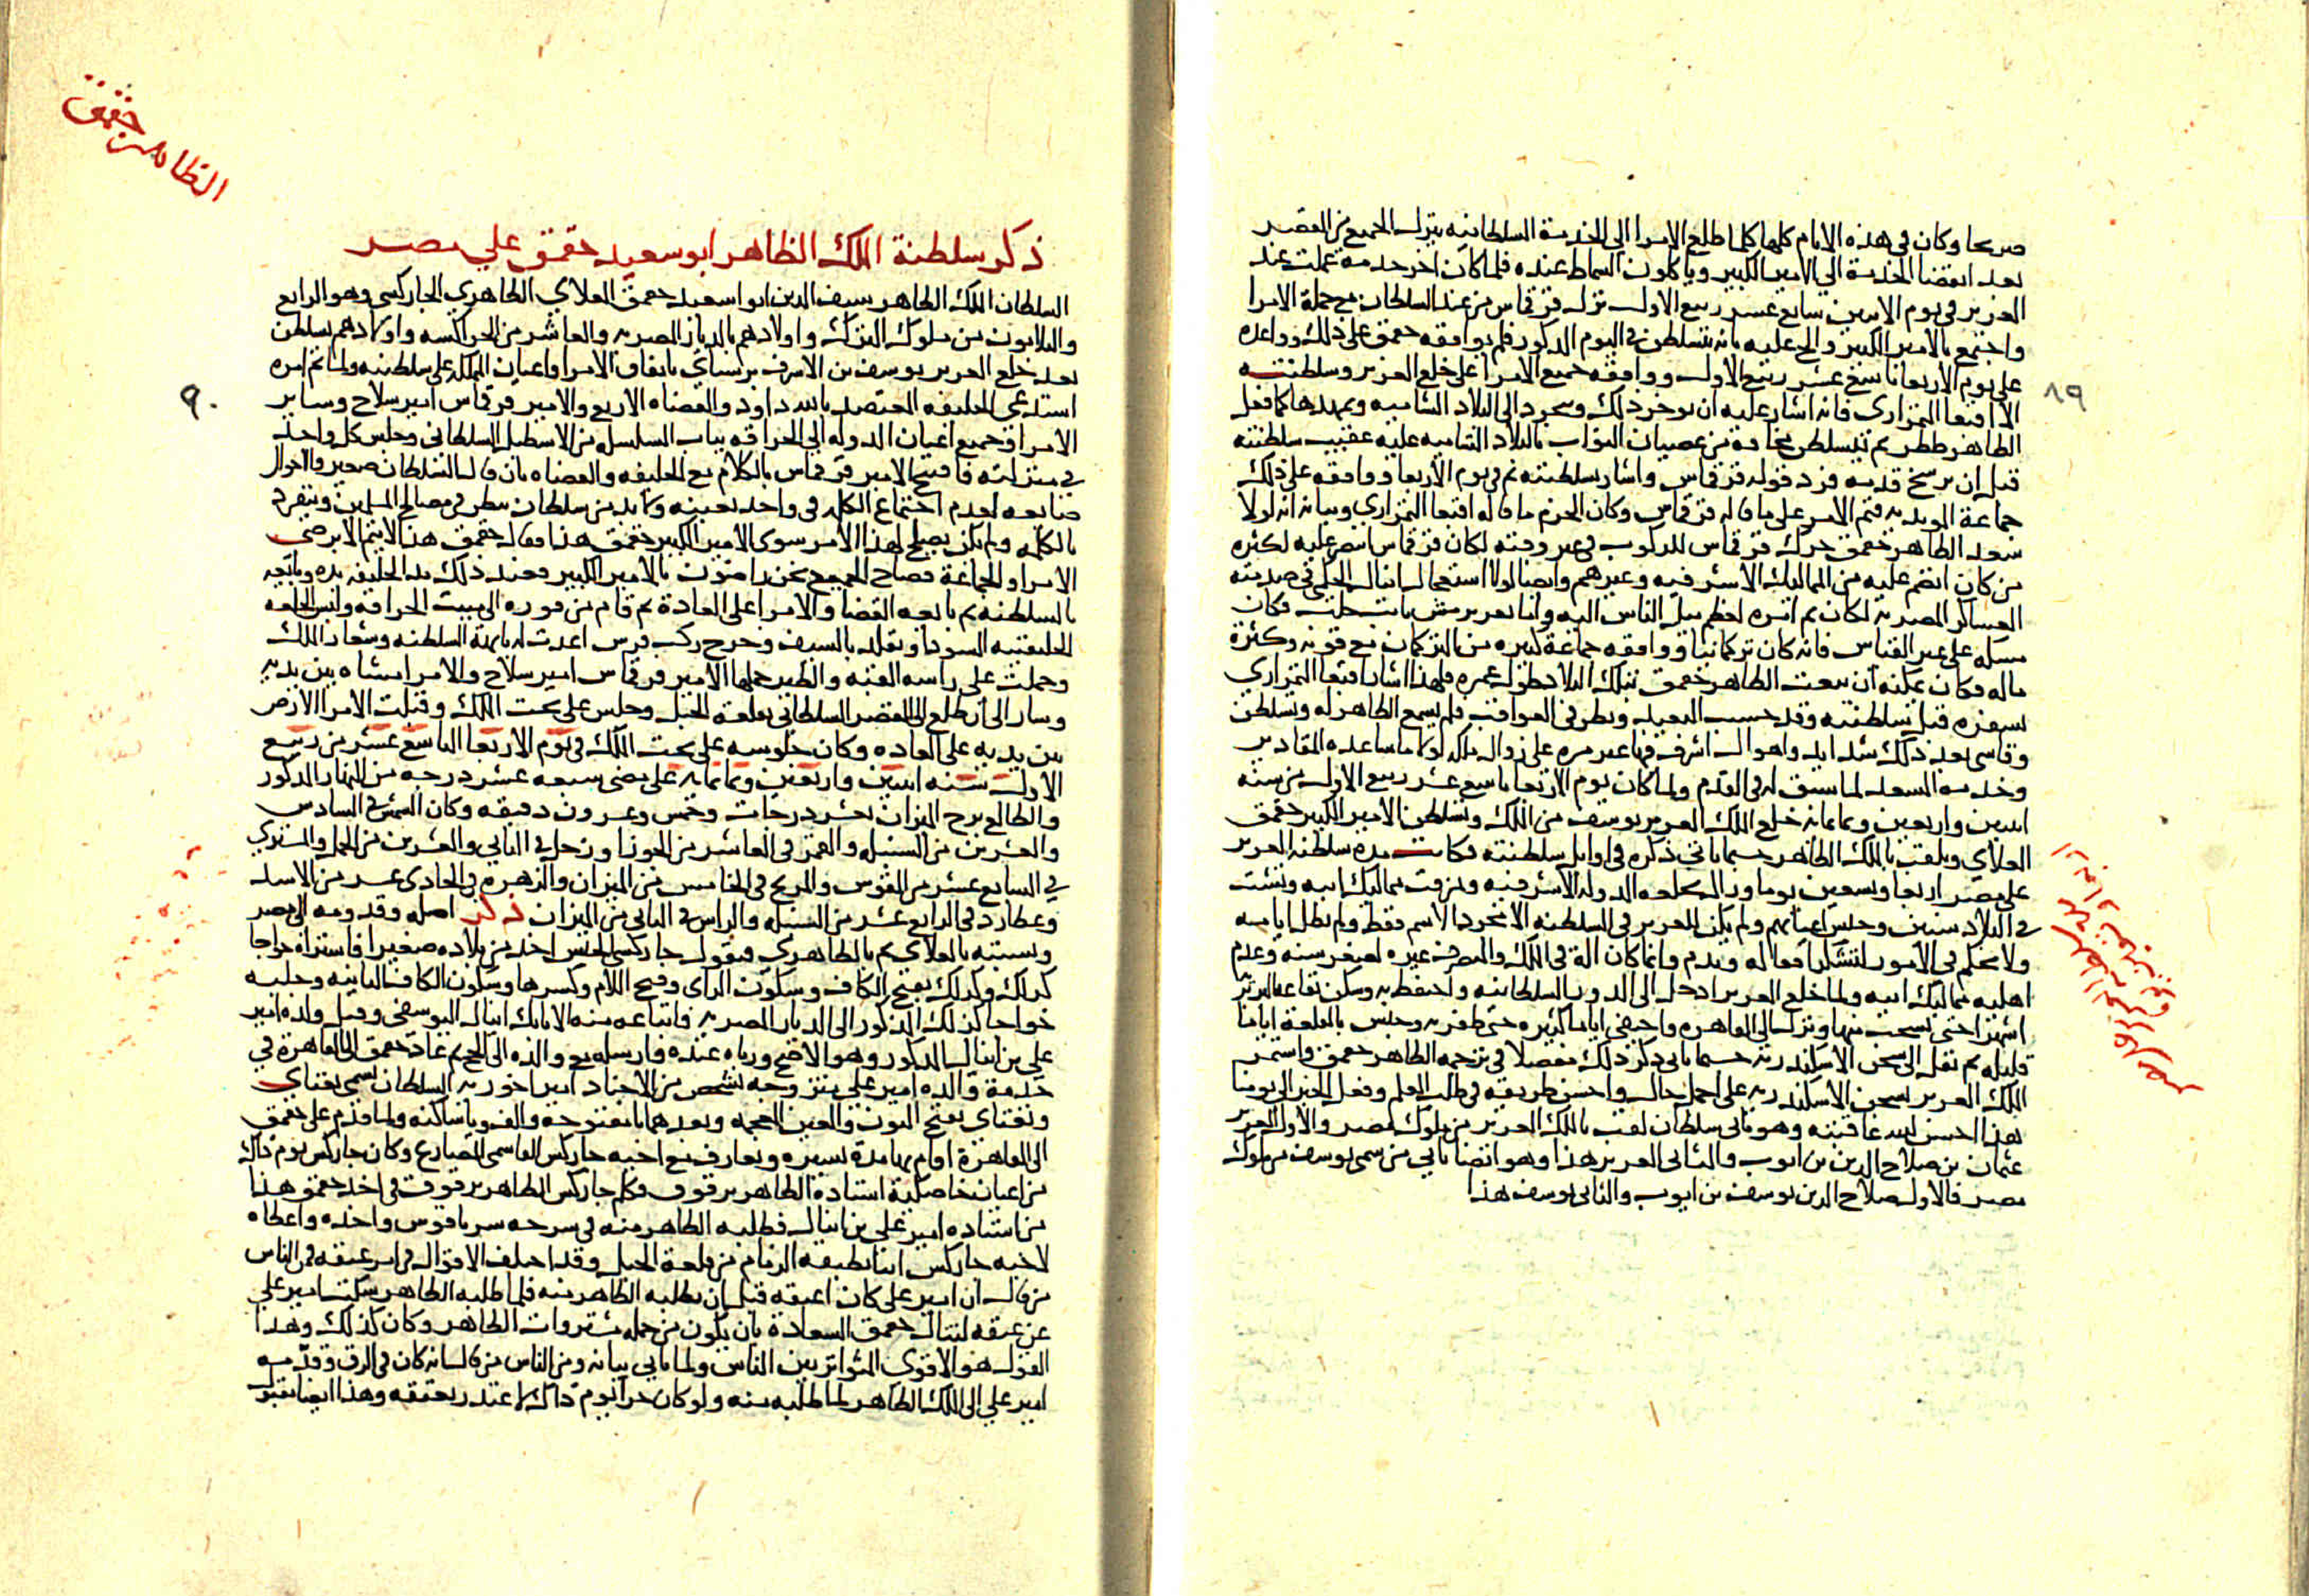 صريحا وكان في هذه الايام كلها كلما طلع الامرا الى الخدمة السلطانيه ينزل الجميع من القصر
بعد انقضا الخدمة الي الامير الكبير وياكلون السماط عنده فلما كان اخر خدمة عملت عند
العزيز في يوم الاثنين سابع عشر ربيع الاول نزل قرقماس من عند السلطان مع جملة الامرا
واجتمع بالامير الكبير والح عليه بانه يتسلطن في اليوم المذكور فلم يوافقه جقمق على ذلك وواعده
على يوم الاربعا تاسع عشر ربيع الاول ووافقه جميع الامرا على خلع العزيز وسلطنته
الا اقبغا التمرازي فانه اشار عليه ان يوخر ذلك ويتجرد الى البلاد الشاميه ويمهدها كما فعل
الظاهر ططر ثم يتسلطن مخافة من عصيان النواب بالبلاد الشاميه عليه عقيب سلطنته
قبل ان يرسخ قدمه فرد قوله قرقماس واشار بسلطنته في يوم الاربعا ووافقه على ذلك
جماعة المويديه فتم الامر على ما قاله قرقماس وكان الحزم ما قاله اقبغا التمرازي وبيانه انه لولا
سعد الظاهر جقمق حرك قرقماس للركوب في غير وقته لكان قرقماس انتصر عليه لكثرة
من كان انضم عليه من المماليك الاشرفيه وغيرهم وايضا لولا استعجال اينال الجكمي في صدمته
العساكر المصريه لكان تم امره لعظم ميل الناس اليه واما تغري برمش نايب حلب فكان
مسكه على غير القياس فانه كان تركمانيا ووافقه جماعة كبيره من التركمان مع قوته وكثرة
ماله فكان يمكنه ان يتعب الظاهر جقمق بتلك البلاد طول عمره فلهذا اشار اقبغا التمرازي
بسفره قبل سلطنته وقد حسب البعيد ونظر في العواقب فلم يسمع الظاهر له وتسلطن
وقاسى بعد ذلك شدايد واهوال اشرف فيها غير مره على زوال ملكه لولا ما ساعده المقادير
وخدمه السعد لما سبق له في القدم ولما كان يوم الاربعا تاسع عشر ربيع الاول من سنة
اثنين واربعين وثمانمائه خلع الملك العزيز يوسف من الملك وتسلطن الامير الكبير جقمق
العلاي وتلقب بالملك الظاهر حسبما ياتي ذكره في اوايل سلطنته فكانت مدة سلطنة العزيز
على مصر اربعا وتسعين يوما وزالت بخلعه الدولة الاشرفيه وتمزقت مماليك ابيه وتشتت
في البلاد سنين وحبس اعيانهم ولم يكن للعزيز في السلطنه الا مجرد الاسم فقط ولم تطل ايامه
ولا تحكم في الامور لتشكر افعاله وتذم وانما كان الة في الملك والمتصرف غيره لصغر سنه وعدم
اهليه مماليك ابيه ولما خلع العزيز ادخل الى الدور السلطانيه واحتفظ به وسكن بقاعة البربرية
اشهرا حتى تسحب منها ونزل الى القاهره واختفى اياما كثيره حتى ظفر به وحبس بالقلعة اياما
قليله ثم نقل الى سجن الاسكندرية حسبما ياتي ذكر ذلك مفصلا في ترجمه الظاهر جقمق واستمر
الملك العزيز بسجن الاسكندريه على اجمل حال واحسن طريقه في طلب العلم وفعل الخير الى يومنا
هذا احسن الله عاقبته وهو ثاني سلطان لقب بالملك العزيز من ملوك مصر والاول العزيز
عثمان بن صلاح الدين بن ايوب والثاني العزيز هذا وهو ايضا ثاني من سمي يوسف من ملوك
مصر فالاول صلاح الدين يوسف بن ايوب والثاني يوسف هذا
٨٩
الظاهر جقمق
ذكر سلطنة الملك الظاهر ابو سعيد جقمق علي مصر
السلطان الملك الظاهر سيف الدين ابو اسعيد جقمق العلاي الظاهري الجاركسي وهو الرابع
والثلاثون من ملوك الترك واولادهم بالديار المصريه والعاشر من الجراكسه واولادهم تسلطن
بعد خلع العزيز يوسف بن الاشرف برسباي باتفاق الامرا واعيان المملكه على سلطنته ولما تم امره
استدعي الخليفه المعتضد بالله داود والقضاه الاربع والامير قرقماس امير سلاح وساير
الامرا وجميع اعيان الدوله الي الحراقه بباب السلسله من الاسطبل السلطاني وجلس كل واحد
في منزلته فافتتح الامير قرقماس بالكلام مع الخليفه والقضاه بان قال السلطان صغير والاحوال
ضايعه لعدم اجتماع الكلمه في واحد بعينه ولا بد من سلطان ينظر في مصالح المسلمين وينفرد
بالكلمه ولم يكن يصلح لهذا الامر سوى الامير الكبير جقمق هذا فقال جقمق هذا لا يتم الا برضى
الامرا والجماعة فصاح الجميع نحن راضون بالامير الكبير فعند ذلك مد الخليفه يده وبايعه
بالسلطنه ثم بايعه القضاه والامرا على العادة ثم قام من فوره الى مبيت الحراقه ولبس الخلعه
الخليفتيه السودا وتقلد بالسيف وخرج ركب فرس اعدت له بابهة السلطنه وشعار الملك
وحملت على راسه القبه والطير حملها الامير قرقماس امير سلاح والامرا مشاه بين يديه
وسار الى ان طلع الى القصر السلطاني بقلعة الجبل وجلس على تخت الملك وقبلت الامرا الارض
بين يديه على العاده وكان جلوسه على تخت الملك في يوم الاربعا التاسع عشر من ربيع
الاول سنه اثنين واربعين وثمانمايه على مضي سبعه عشر درجه من النهار المذكور
والطالع برج الميزان بعشر درجات وخمس وعشرون دقيقه وكان الشمس في السادس
والعشرين من السنبله والقمر في العاشر من الجوزا وزحل في الثاني والعشرين من الحمل والمشتري
في السابع عشر من القوس والمريخ في الخامس من الميزان والزهره في الحادي عشر من الاسد
وعطارد في الرابع عشر من السنبله والراس في الثاني من الميزان ذكر اصله وقدومه الى مصر
ونسبته بالعلاي ثم بالظاهري فنقول جاركسي الجنس اخذ من بلاده صغيرا فاشتراه خواجا
كزلك وكزلك بفتح الكاف وسكون الزاي وفتح اللام وكسرها وسكون الكاف الثانيه وجلبه
خواجا كزلك المذكور الى الديار المصريه فابتاعه منه الاتابك اينال اليوسفي وقيل ولده امير
علي بن اينال المذكور وهو الاصح ورباه عنده وارسله مع والده الى الحج ثم عاد جقمق الى القاهرة في
خدمة والده امير علي بتزوجه بشخص من الاجناد امير اخوريه السلطان يسمى نغتاي
ونغتاي بفتح النون والغين المعجمه وبعدهما تا مفتوحه والف ويا ساكنه ولما قدم على جقمق
الى القاهرة اقام بها مدة يسيره وتعارف مع اخيه جاركس القاسمي المصارع وكان جاركس يوم ذاك
من اعيان خاصكية استاده الظاهر برقوق فكلم جاركس الظاهر برقوق في اخذ جقمق هذا
من استاده امير علي بن اينال فطلبه الظاهر منه في سرحه سرياقوس واخذه واعطاه
لاخيه جاركس انيا بطبقه الزمام من قلعة الجبل وقد اختلف الاقوال في امر عتقه فمن الناس
من قال ان امير علي كان اعتقه قبل ان يطلبه الظاهر منه فلما طلبه الظاهر سكت امير علي
عن عتقه لتنال جقمق السعادة بان يكون من جمله مشتروات الظاهر وكان كذلك وهذا
القول هو الاقوى المتواتر بين الناس ولما ياتي بيانه ومن الناس من قال انه كان في الرق وقدمه
امير علي الى الملك الظاهر لما طلبه منه ولو كان حرا يوم ذاك لا عتذر بعتقه وهذا ايضا مقبول
٩٠